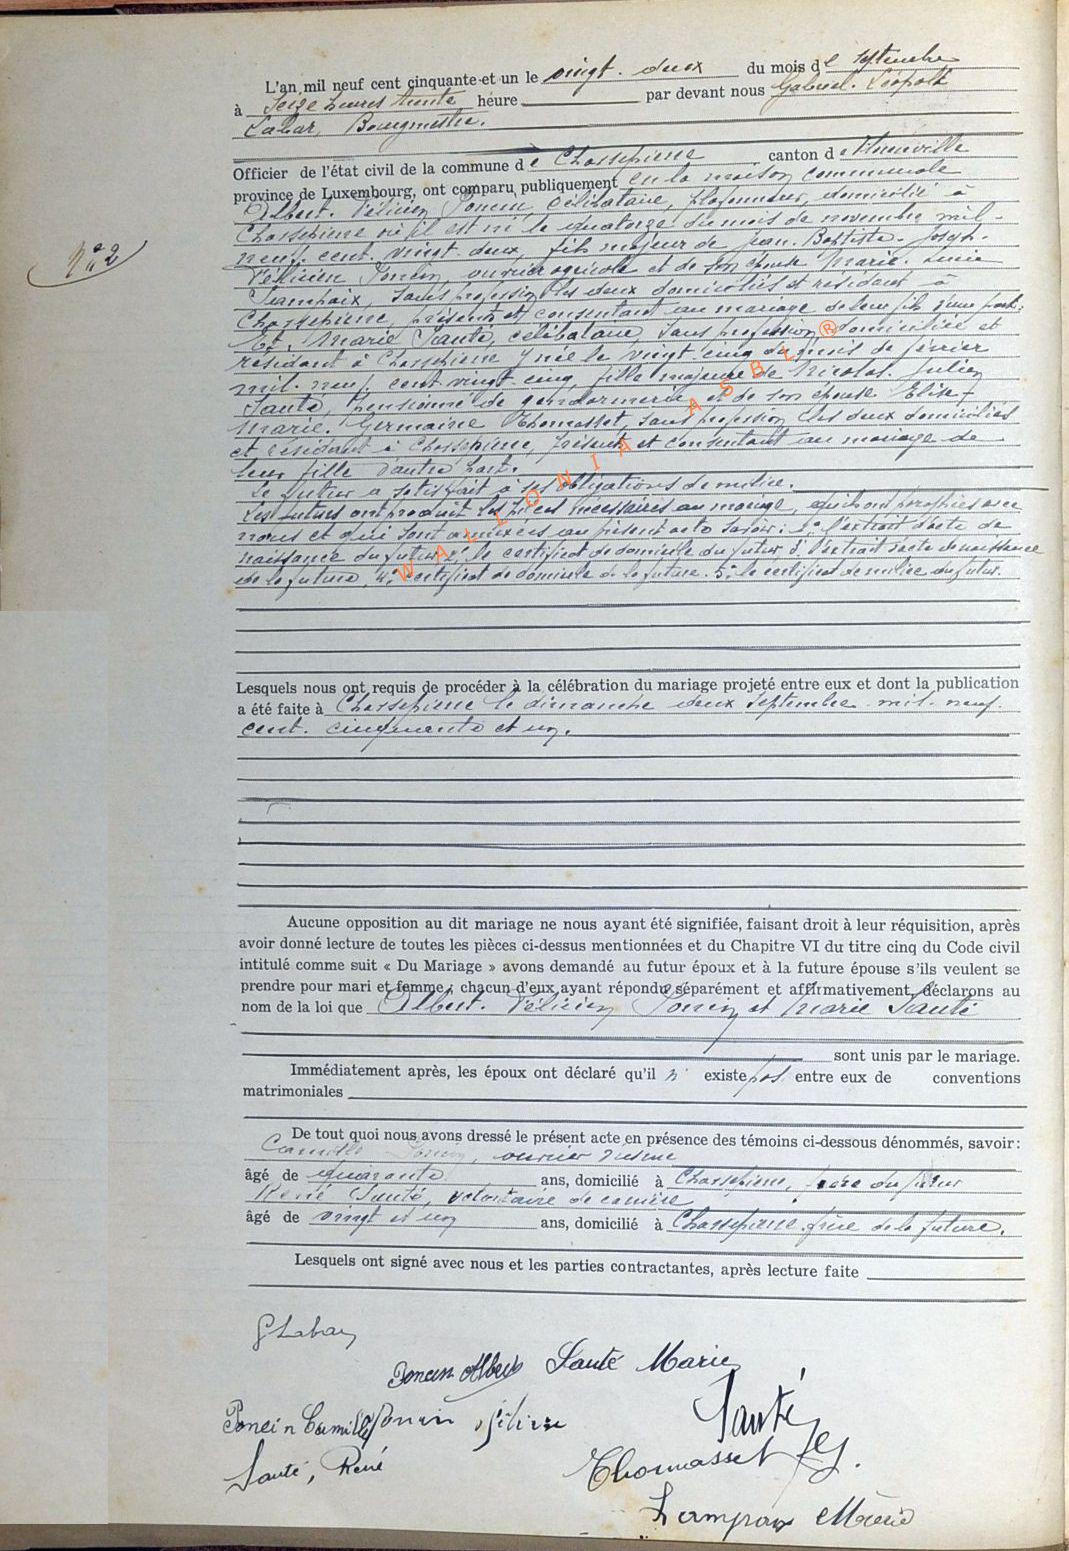 L'an mil neuf cent cinquante et un le vingt-deux du mois de septembre
à seize heures trente heure par devant nous Gabriel. Léopold
Labar, Bourgmestre.
Officier de l'état civil de la commune de Chassepierre canton de
province de Luxembourg, ont comparu publiquement en la maison communale
Albert. Félicien Poncin, célibataire, plafonneur, domicilié à
Chassepierre où il est né le quatorze du mois de novembre mil-
neuf. cent. vingt. deux, fils majeur de Jean. Baptiste. Joseph.
Félicien Poncin, ouvrier agricole et de son épouse Marie. Lucie
Lampaix, sans profession, les deux domiciliés et résidant à
Chassepierre, présents et consentant au mariage de leur fils d'une part:
N° 2
Et, Marie Santé, célibataire, sans profession, domiciliée et
résidant à Chassepierre y née le vingt cinq du mois de février
mil. neuf. cent. vingt cinq, fille majeure de Nicolas. Julien
Santé, pensionné de gendarmerie et de son épouse Elise-
Marie. Germaine Thomasset, sans profession, les deux domiciliés
et résidant à Chassepierre, présents et consentant au mariage de
leur fille d'autre part.
Le futur a satisfait à ses obligations de milice.
Les futurs ont produit les pièces nécessaires au mariage, qu'ils ont avec
nous et qui sont annexées au présent acte savoir: 1° l'extrait d'acte de
naissance du futur 2° le certificat de domicile du futur 3° l'extrait d'acte de naissance
de la future 4° certificat de domicile de la future. 5° le certificat de milice du futur.
WALLONIA ASBL ®
Lesquels nous ont requis de procéder à la célébration du mariage projeté entre eux et dont la publication
a été faite à Chassepierre le dimanche deux septembre mil. neuf.
cent. cinquante et un.
Aucune opposition au dit mariage ne nous ayant été signifiée, faisant droit à leur réquisition, après
avoir donné lecture de toutes les pièces ci-dessus mentionnées et du Chapitre VI du titre cinq du Code civil
intitulé comme suit « Du Mariage » avons demandé au futur époux et à la future épouse s'ils veulent se
prendre pour mari et femme ; chacun d'eux ayant répondu séparément et affirmativement, déclarons au
nom de la loi que Albert. Félicien Poncin et Marie Santé
sont unis par le mariage.
Immédiatement après, les époux ont déclaré qu'il n' existe pas entre eux de conventions
matrimoniales
De tout quoi nous avons dressé le présent acte en présence des témoins ci-dessous dénommés, savoir :
Camille Poncin, ouvrier usine
âgé de quarante ans, domicilié à Chassepierre, frère du futur
René Santé, volontaire de carrière
âgé de vingt et un ans, domicilié à Chassepierre. frère de la future.
Lesquels ont signé avec nous et les parties contractantes, après lecture faite
G Labar
Poncin Albert Santé Marie
Poncin Camille Poncin Félicien Santé
Santé, René Thomasset
Lampaix Marie